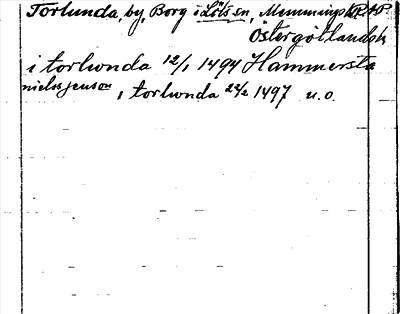 Torlunda, by, Borg i Löts sn, Memmings hd
Östergötlands
i torlwnda 12/1 1494 Hammersta
nielss jensson, i torlwnda 22/2 1497 u.o.